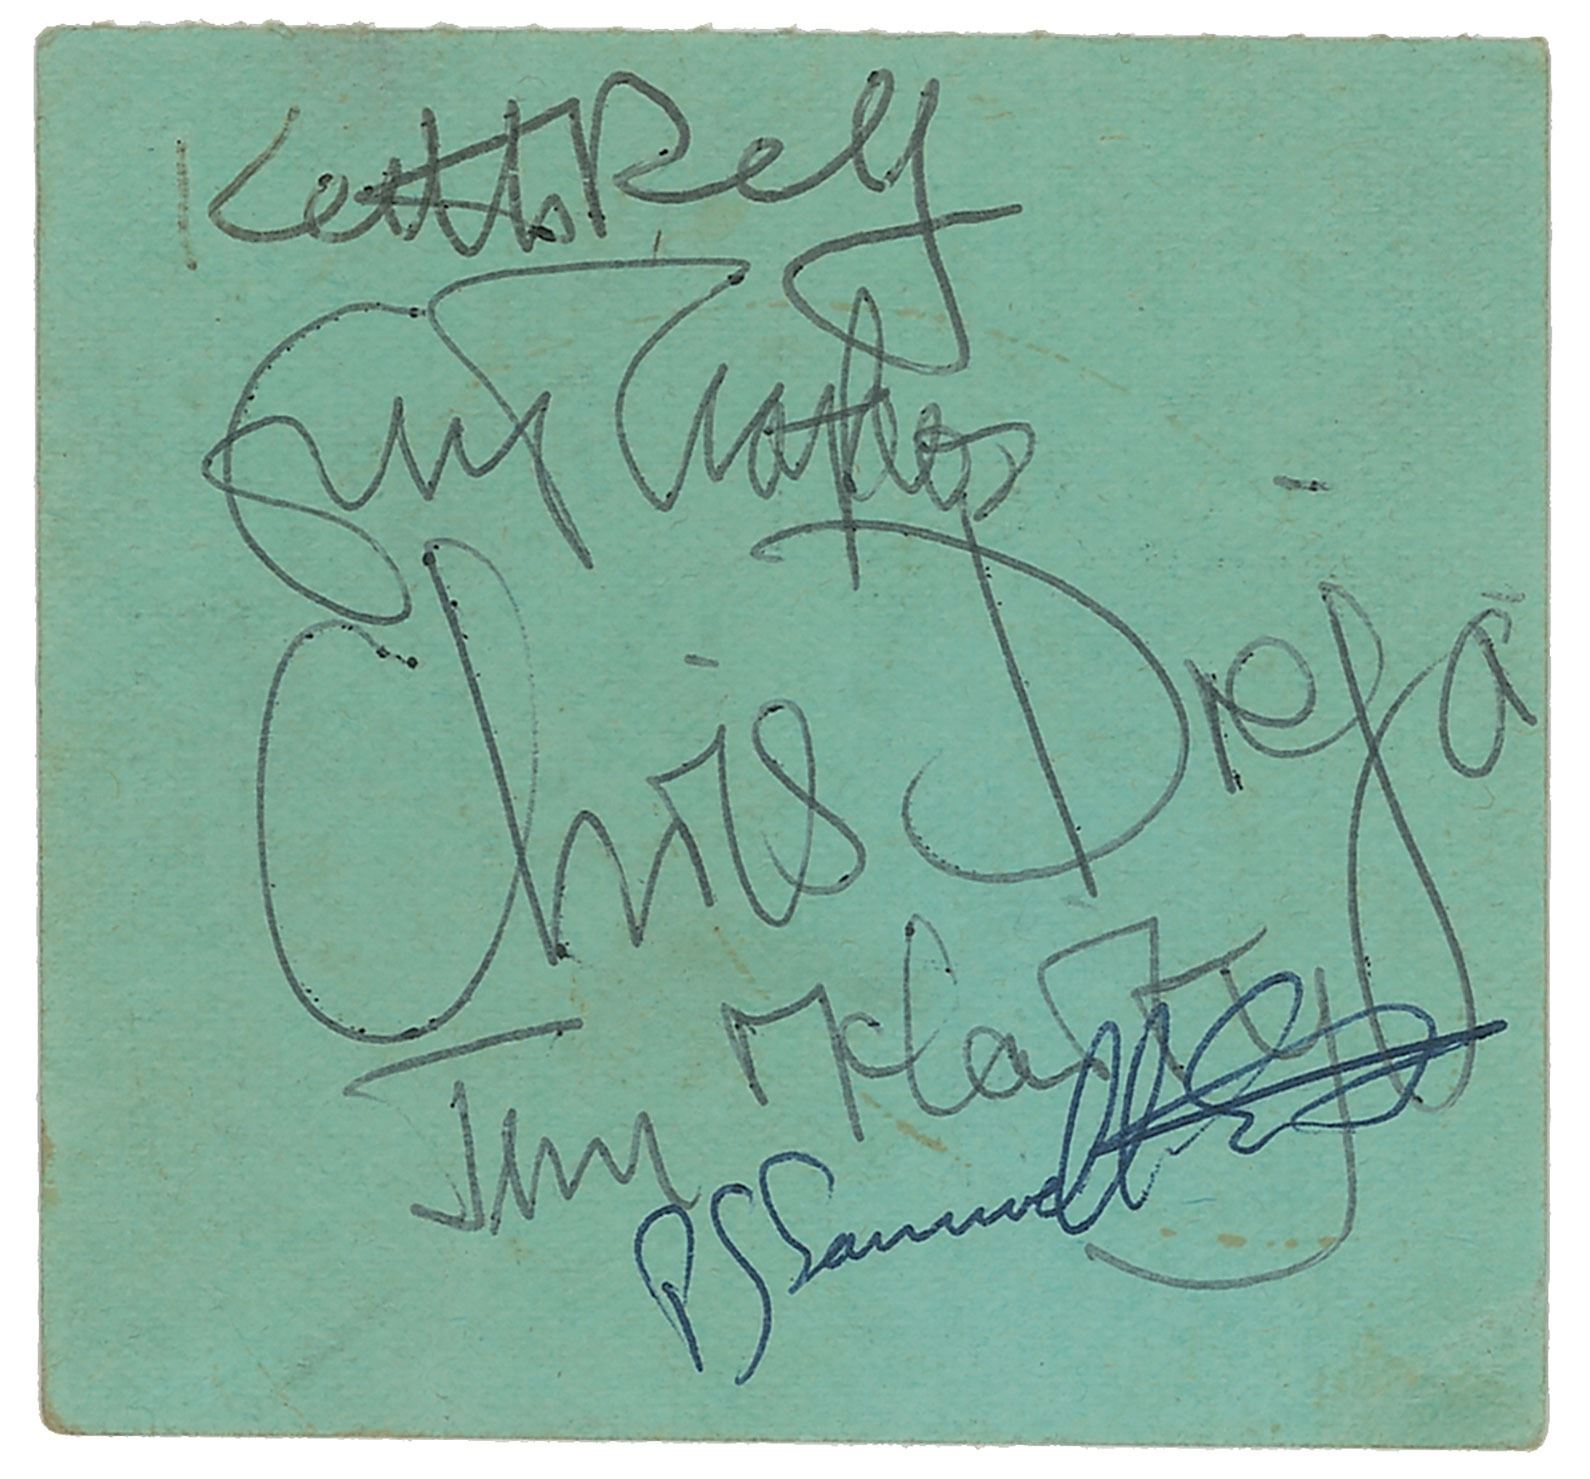 Keith Relf
Eric Clapton
Chris Dreja
Jim McCarty
P S Samwell Smith